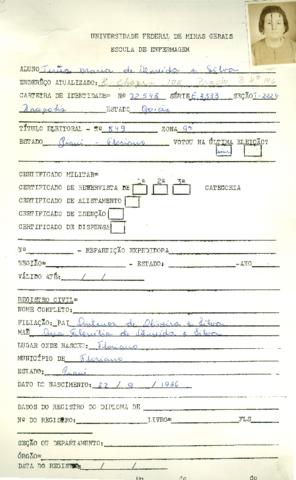 UNIVERSIDADE FEDERAL DE MINAS GERAIS
ESCOLA DE ENFERMAGEM
ALUNO: Maria de e Silva
ENDEREÇO ATUALIZADO:
CARTEIRA DE IDENTIDADE= Nº 22.548 SÉRIE SEÇÃO:
Anapolis ESTADO Goiás
TÍTULO ELEITORAL - Nº 849 ZONA 9ª
ESTADO Piauí - Floriano VOTOU NA ÚLTIMA ELEIÇÃO?
CERTIFICADO MILITAR=
CERTIFICADO DE RESERVISTA DE 1ª 2ª 3ª CATEGORIA
CERTIFICADO DE ALISTAMENTO
CERTIFICADO DE ISENÇÃO
CERTIFICADO DE DISPENSA
Nº - REPARTIÇÃO EXPEDIDORA
REGIÃO= - ESTADO: -ANO
VÁLIDO ATÉ: / /
REGISTRO CIVIL=
NOME COMPLETO:
FILIAÇÃO: PAI de Oliveira e Silva
MÃE Ana de e Silva
LUGAR ONDE NASCEU: Floriano
MUNICÍPIO DE Floriano
ESTADO: Piauí
DATA DO NASCIMENTO: / 9 /
DADOS DO REGISTRO DO DIPLOMA DE
Nº DO REGISTRO: LIVRO= FLS
SEÇÃO OU DEPARTAMENTO:
ÓRGÃO=
DATA DO REGISTRO / /
de de